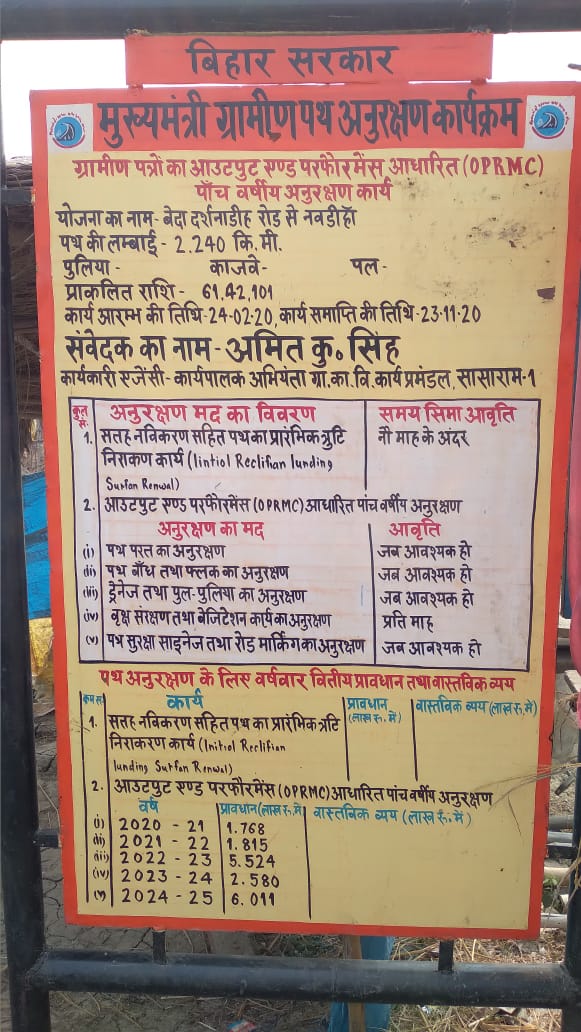 बिहार सरकार
मुख्यमंत्री ग्रामीण पथ अनुरक्षण कार्यक्रम
ग्रामीण पत्रों का आउटपुट एण्ड परफौरमेंस आधारित (OPRMC)
पाँच वर्षीय अनुरक्षण कार्य
योजना का नाम- बेदा दर्शनाडीह रोड से नवडीहाँ
पथ की लम्बाई - 2.240 कि.मी.
पुलिया - काजवे- पल-
प्राकलित राशि - 61,42,101
कार्य आरम्भ की तिथि-24-02-20, कार्य समाप्ति की तिथि-23-11-20
संवेदक का नाम - अमित कु० सिंह
कार्यकारी एजेंसी- कार्यपालक अभियंता ग्रा.का.वि.कार्य प्रमंडल, सासाराम-1
अनुरक्षण मद का विवरण समय सिमा आवृति
1. सतह नविकरण सहित पथ का प्रारंभिक त्रुटि नौ माह के अंदर
निराकण कार्य (Iintiol Reclifian lunding
Surfan Renwal)
2. आउटपुट एण्ड परफौरमेंस (OPRMC) आधारित पांच वर्षीय अनुरक्षण
अनुरक्षण का मद आवृति
(i) पथ परत का अनुरक्षण जब आवश्यक हो
(ii) पथ बाँध तथा फ्लक का अनुरक्षण जब आवश्यक हो
(iii) ड्रेनेज तथा पुल-पुलिया का अनुरक्षण जब आवश्यक हो
(iv) वृक्ष संरक्षण तथा बेजिटेशन कार्य का अनुरक्षण प्रति माह
(v) पथ सुरक्षा साइनेज तथा रोड मार्किंग का अनुरक्षण जब आवश्यक हो
पथ अनुरक्षण के लिए वर्षवार वितीय प्रावधान तथा वास्तविक व्यय
क्रम सं. कार्य प्रावधान (लाख रु. में) वास्तविक व्यय (लाख रु. में)
1. सतह नविकरण सहित पथ का प्रारंभिक त्रटि
निराकरण कार्य (Initiol Reclifian
lunding Surfan Renwal)
2. आउटपुट एण्ड परफौरमेंस (OPRMC) आधारित पांच वर्षीय अनुरक्षण
वर्ष प्रावधान (लाख रु. में) वास्तबिक व्यय (लाख रु. में)
(i) 2020 - 21 1.768
(ii) 2021 - 22 1.815
(iii) 2022 - 23 5.524
(iv) 2023 - 24 2.580
(v) 2024 - 25 6.011